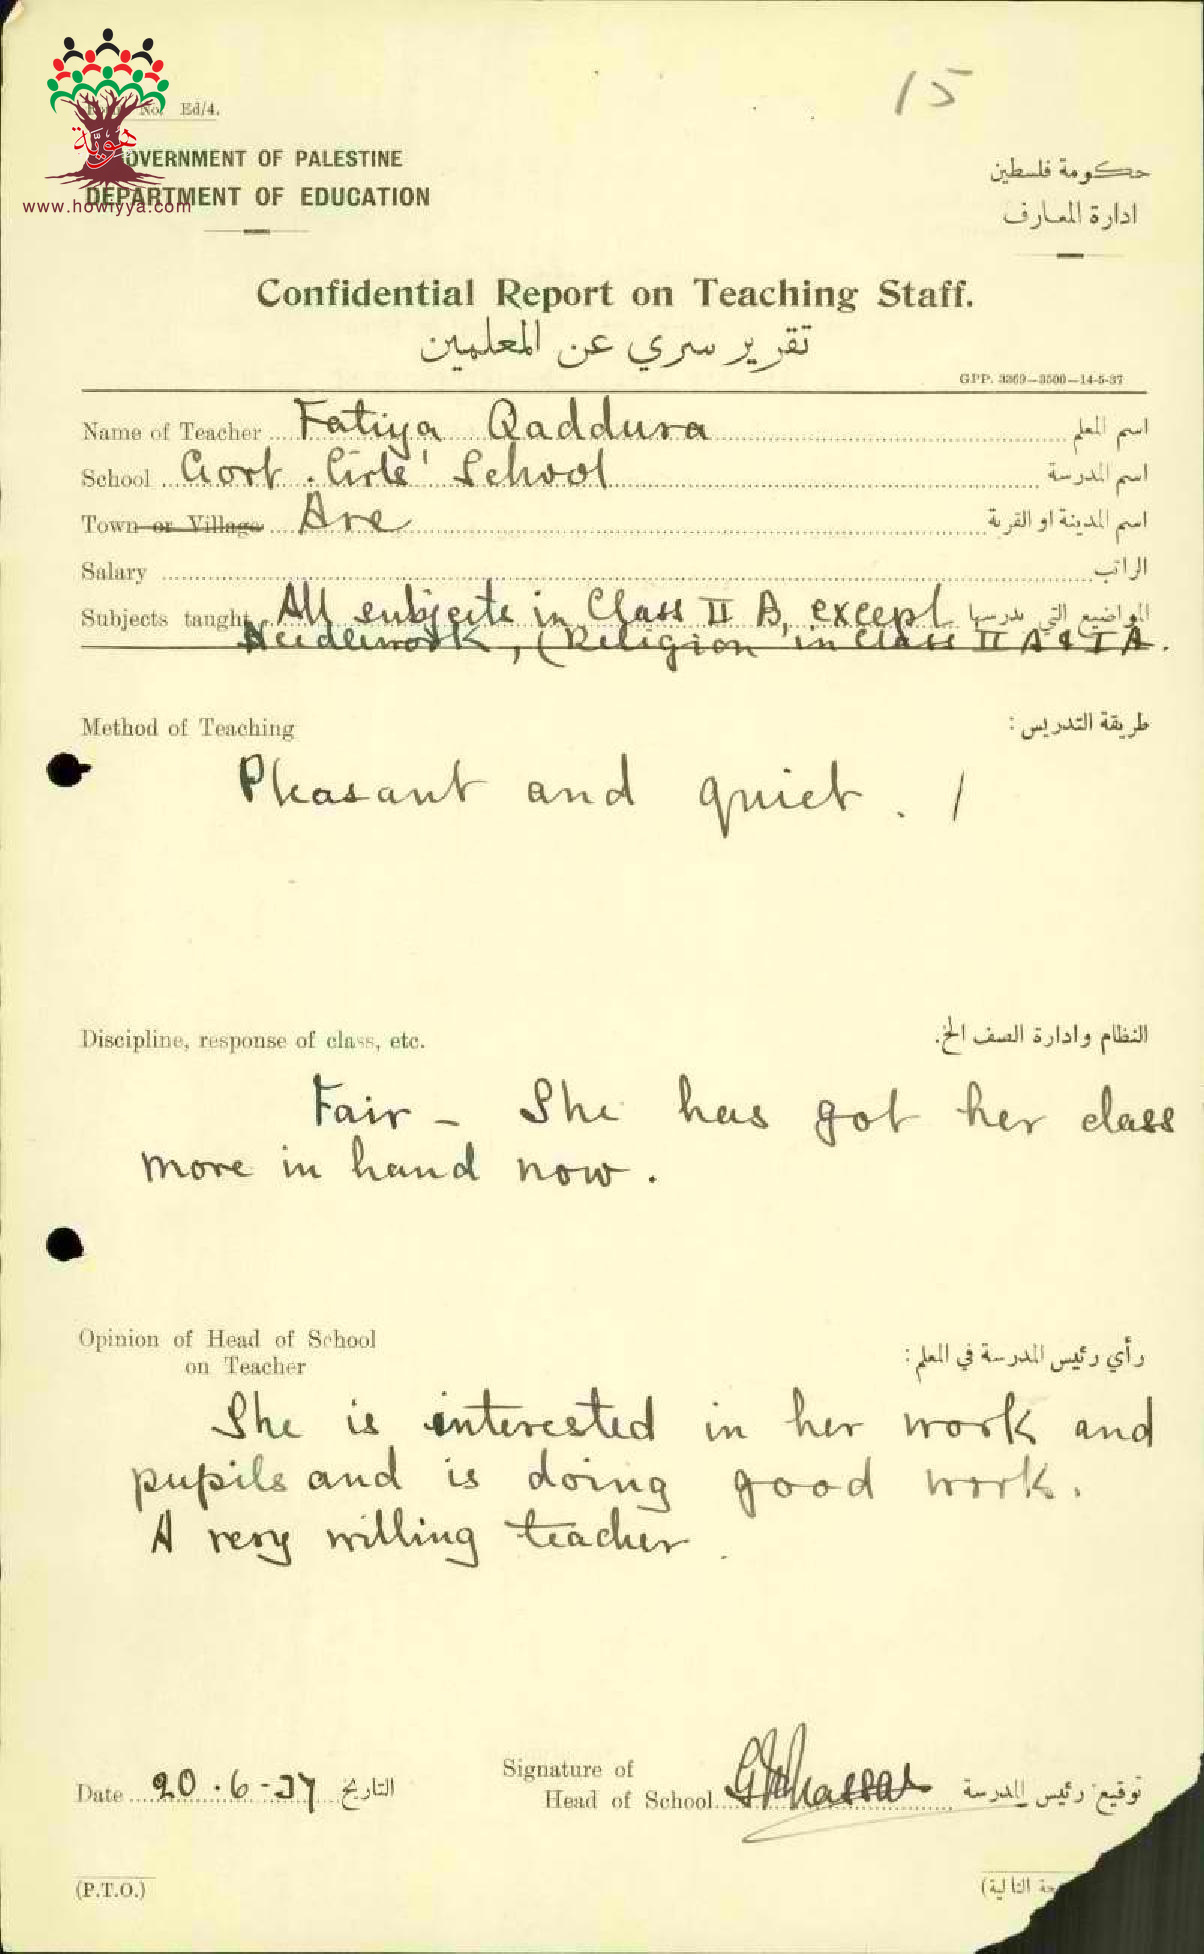 15
No. Ed/4.
هويّة
www.howiyya.com
OVERNMENT OF PALESTINE
DEPARTMENT OF EDUCATION
حكومة فلسطين
ادارة المعارف
Confidential Report on Teaching Staff.
تقرير سري عن المعلمين
GPP. 3369—3500—14-5-37
Name of Teacher Fatiya Qaddura اسم المعلم
School Govt. Girls' School اسم المدرسة
Town or Village Acre اسم المدينة او القرية
Salary الراتب
Subjects taught All subjects in Class II B, except المواضيع التي يدرسها
Needlework, (Religion in Class II A & I A.
Method of Teaching طريقة التدريس:
Pleasant and quiet. /
Discipline, response of class, etc. النظام وادارة الصف الخ.
Fair - She has got her class
more in hand now.
Opinion of Head of School
on Teacher رأي رئيس المدرسة في المعلم:
She is interested in her work and
pupils and is doing good work.
A very willing teacher.
Signature of
Date 20.6-37 التاريخ Head of School توقيع رئيس المدرسة
(P.T.O.) التالية)